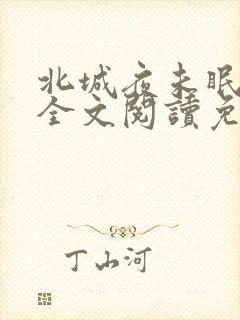 北城夜未眠
全文閱讀免
丁山河